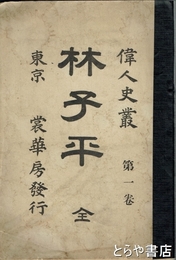 偉人史叢 第一卷
林子平 全
東京 裳華房發行
とらや書店